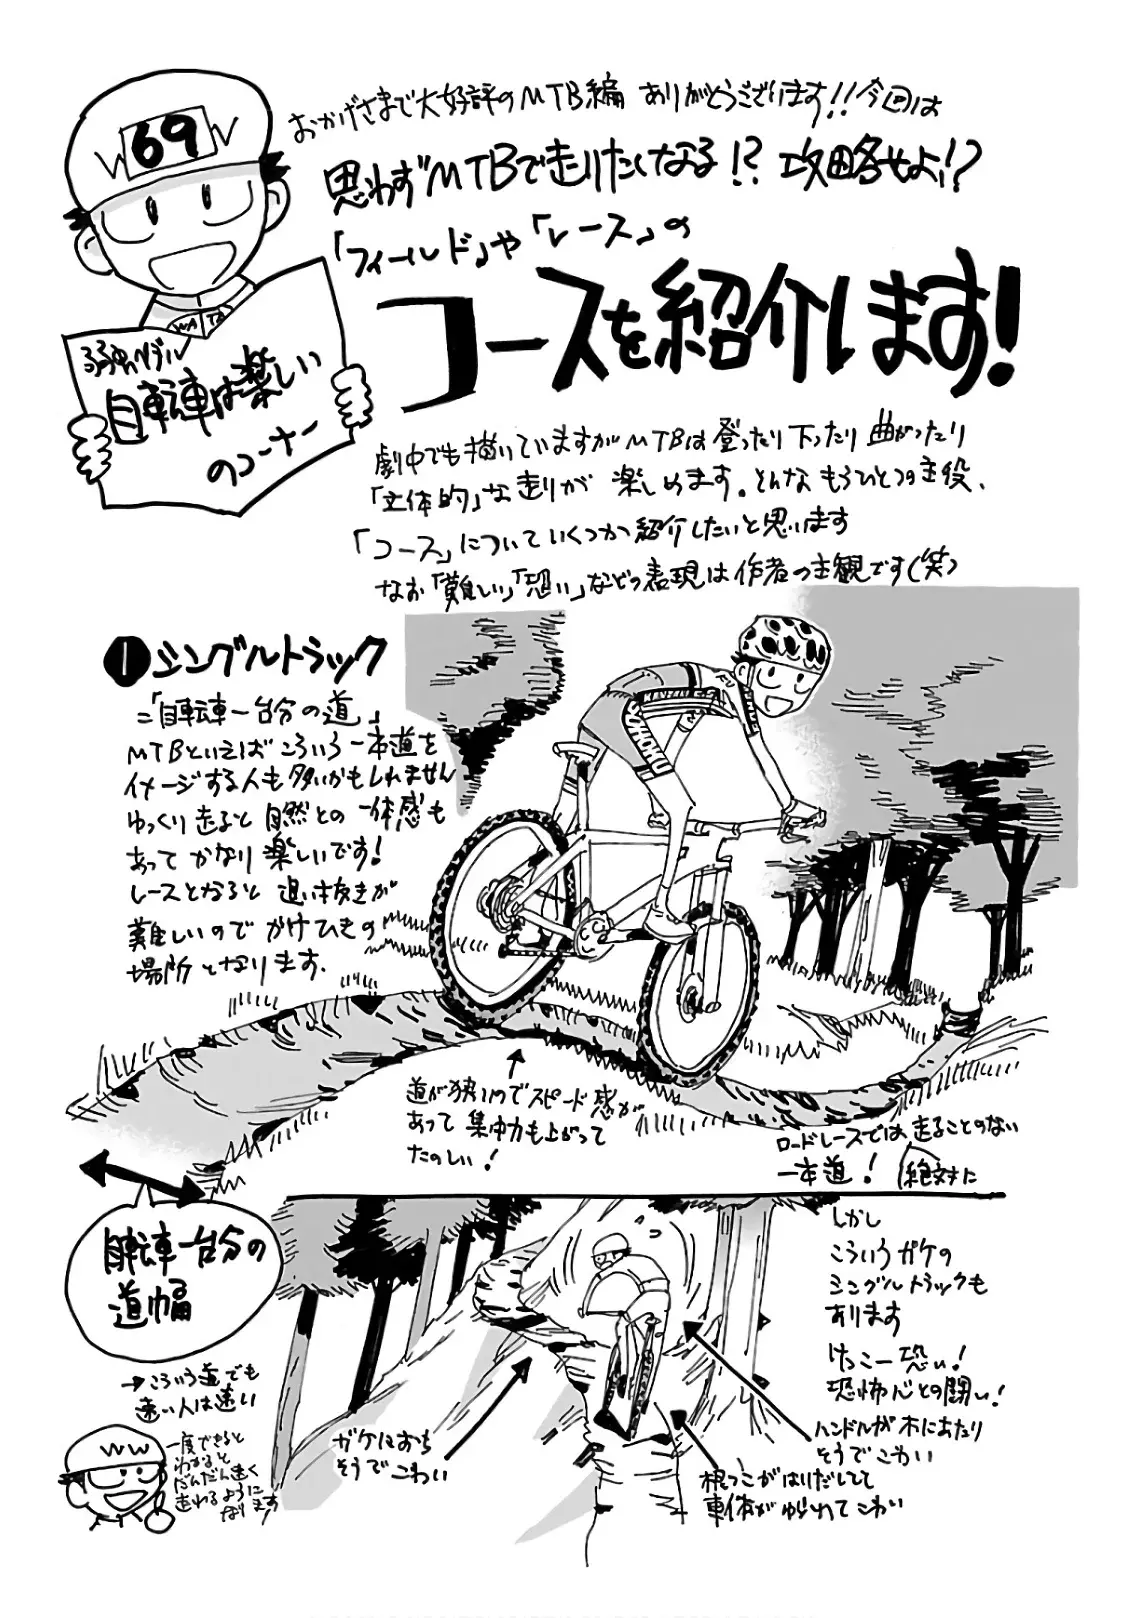 おかげさまで大好評のMTB編 ありがとうございます!!今回は
思わずMTBで走りたくなる!? 攻略せよ!?
「フィールド」や「レース」の
コースを紹介します!
69
自転車は楽しい
のコーナー
劇中でも描いていますがMTBは登ったり下ったり曲がったり
「立体的」な走りが楽しめます。そんなもうひとつの主役、
「コース」についていくつか紹介したいと思います
なお「難しい」「恐い」などの表現は作者の主観です(笑)
❶シングルトラック
=「自転車一台分の道」
MTBといえばこういう一本道を
イメージする人も多いかもしれません
ゆっくり走ると自然との一体感も
あってかなり楽しいです!
レースとなると追い抜きが
難しいのでかけひきの
場所となります.
SOHOKU
↑
道が狭いのでスピード感が
あって集中力も上がって
たのしい!
ロードレースでは走ることのない
一本道! 絶対に
自転車一台分の
道幅
→こういう道でも
速い人は速い
WW
一度できると
わかると
だんだん速く
走れるように
なります
しかし
こういうガケの
シングルトラックも
あります
けっこー恐い!
恐怖心との闘い!
ハンドルが木にあたり
そうでこわい
ガケにおち
そうでこわい
根っこがはりだしてて
車体がゆられてこわい